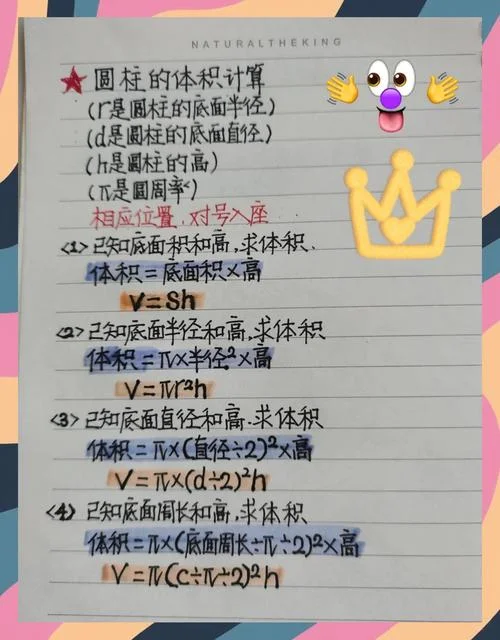 NATURALTHEKING
圆柱的体积计算
(r是圆柱的底面半径)
(d是圆柱的底面直径)
(h是圆柱的高)
(π是圆周率)
相应位置,对号入座
<1>已知底面积和高,求体积.
体积=底面积×高
V=Sh
<2>已知底面半径和高,求体积
体积=π×半径²×高
V=πr²h
<3>已知底面直径和高.求体积
体积=π×(直径÷2)²×高
V=π×(d÷2)²h
<4>已知底面周长和高,求体积
体积=π×(底面周长÷π÷2)²×高
V=π(c÷π÷2)²h